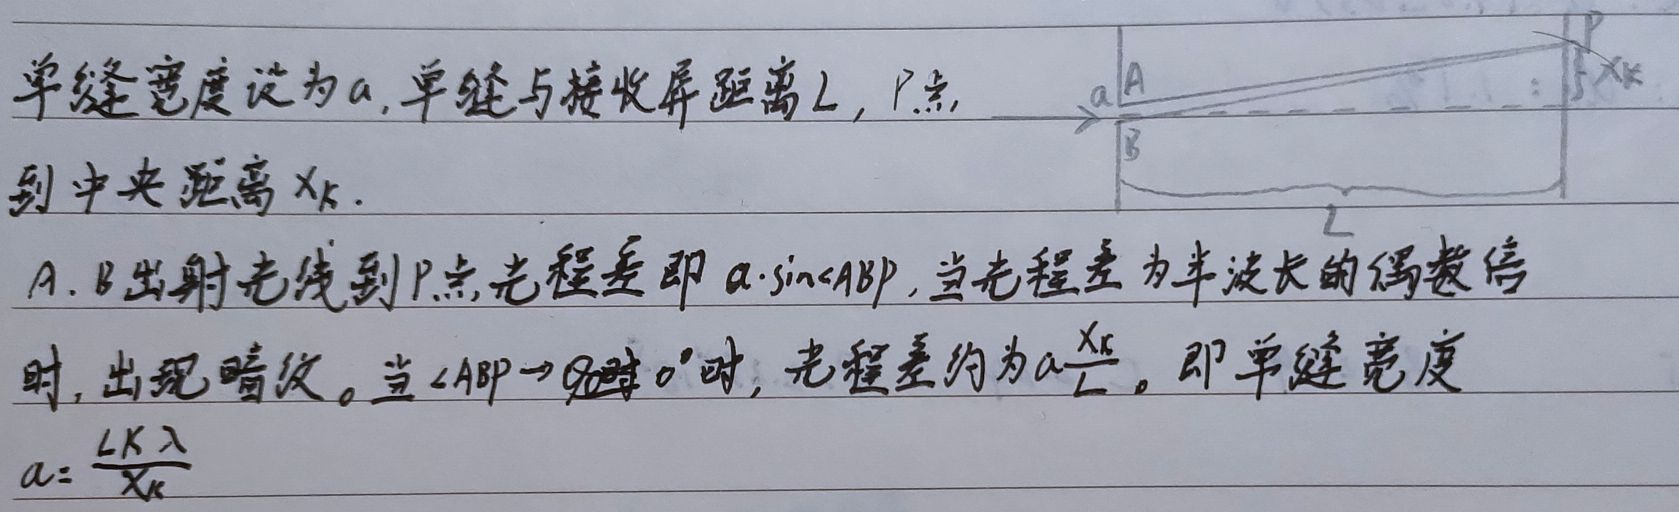 单缝宽度设为a,单缝与接收屏距离L,P点
到中央距离XK.
A.B出射光线到P点光程差即a·sin∠ABP,当光程差为半波长的偶数倍
时,出现暗纹。当∠ABP→0°时,光程差约为a\frac{XK}{L}。即单缝宽度
a=\frac{LKλ}{XK}
P
A
a
XK
B
L